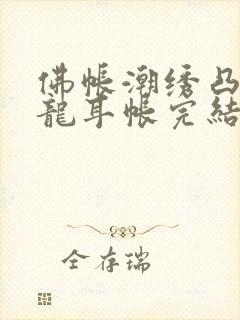 佛帐潮绣凸
龍耳帐完結
仝存瑞